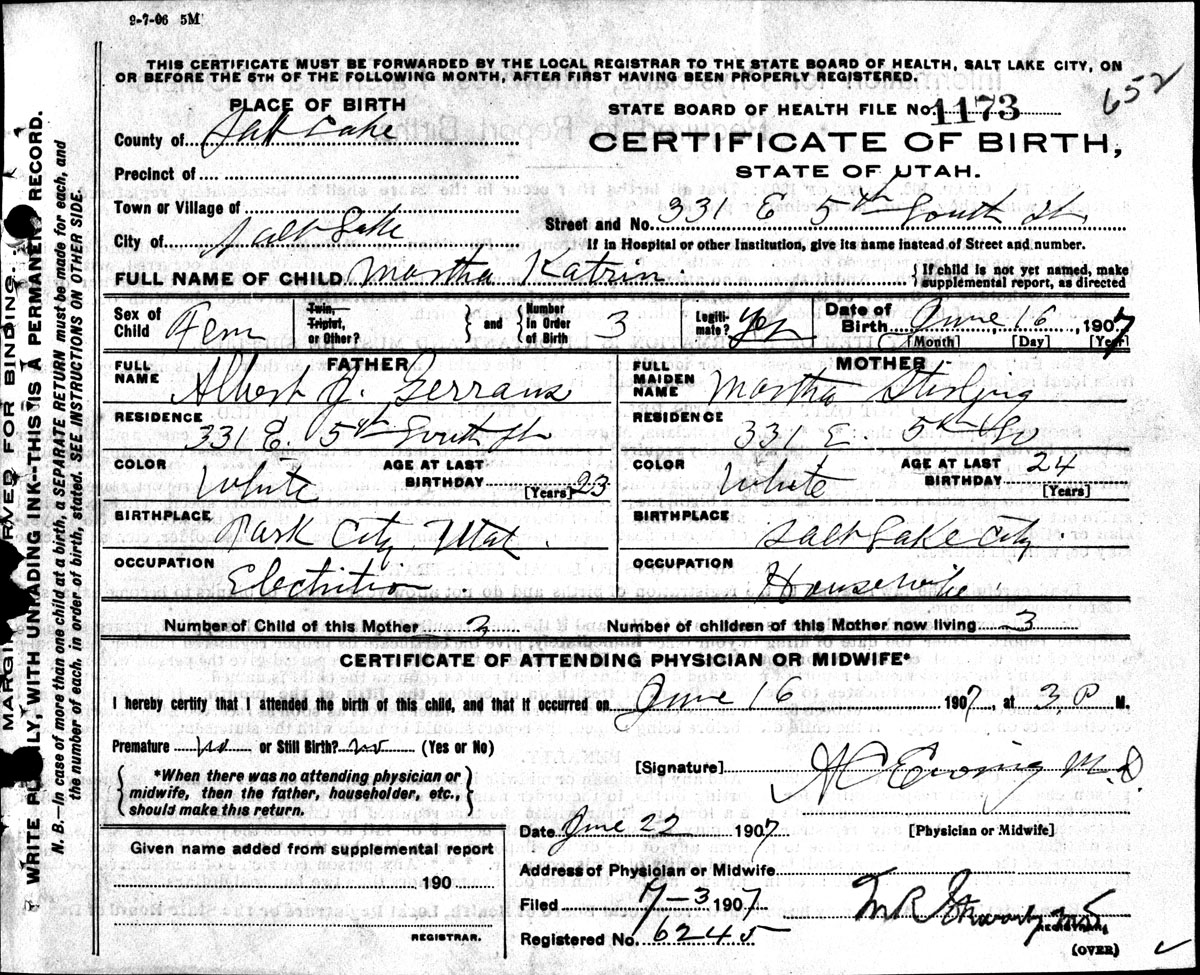 9-7-06 5M
THIS CERTIFICATE MUST BE FORWARDED BY THE LOCAL REGISTRAR TO THE STATE BOARD OF HEALTH, SALT LAKE CITY, ON
OR BEFORE THE 5TH OF THE FOLLOWING MONTH, AFTER FIRST HAVING BEEN PROPERLY REGISTERED.
652
PLACE OF BIRTH
STATE BOARD OF HEALTH FILE No. 1173
County of Salt Lake
CERTIFICATE OF BIRTH,
Precinct of
STATE OF UTAH.
Town or Village of
Street and No. 331 E 5th South St.
City of Salt Lake
If in Hospital or other Institution, give its name instead of Street and number.
FULL NAME OF CHILD Martha Katrin
{If child is not yet named, make supplemental report, as directed
Sex of Child Fem
Twin, Triplet, or Other? } and { Number in Order of Birth 3
Legitimate? Yes
Date of Birth June 16, 1907
[Month] [Day] [Year]
FATHER
FULL NAME Albert J. Gerrans
MOTHER
FULL MAIDEN NAME Martha
RESIDENCE 331 E. 5th South St
RESIDENCE 331 E. 5th So
COLOR White
AGE AT LAST BIRTHDAY 23 [Years]
COLOR White
AGE AT LAST BIRTHDAY 24 [Years]
BIRTHPLACE Park City Utah.
BIRTHPLACE Salt Lake City
OCCUPATION Electrition
OCCUPATION Housewife
Number of Child of this Mother 3
Number of children of this Mother now living 3
CERTIFICATE OF ATTENDING PHYSICIAN OR MIDWIFE*
I hereby certify that I attended the birth of this child, and that it occurred on June 16 1907, at 3 P M.
Premature no or Still Birth? no (Yes or No)
{*When there was no attending physician or midwife, then the father, householder, etc., should make this return.}
[Signature] Ewing M.D.
Date June 22 1907
[Physician or Midwife]
Given name added from supplemental report
190
REGISTRAR.
Address of Physician or Midwife
Filed 7-3 1907
Registered No. 6245
REGISTRAR.
(OVER)
MARGIN RESERVED FOR BINDING.
WRITE PLAINLY, WITH UNFADING INK--THIS IS A PERMANENT RECORD.
N. B.—In case of more than one child at a birth, a SEPARATE RETURN must be made for each, and
the number of each, in order of birth, stated. SEE INSTRUCTIONS ON OTHER SIDE.